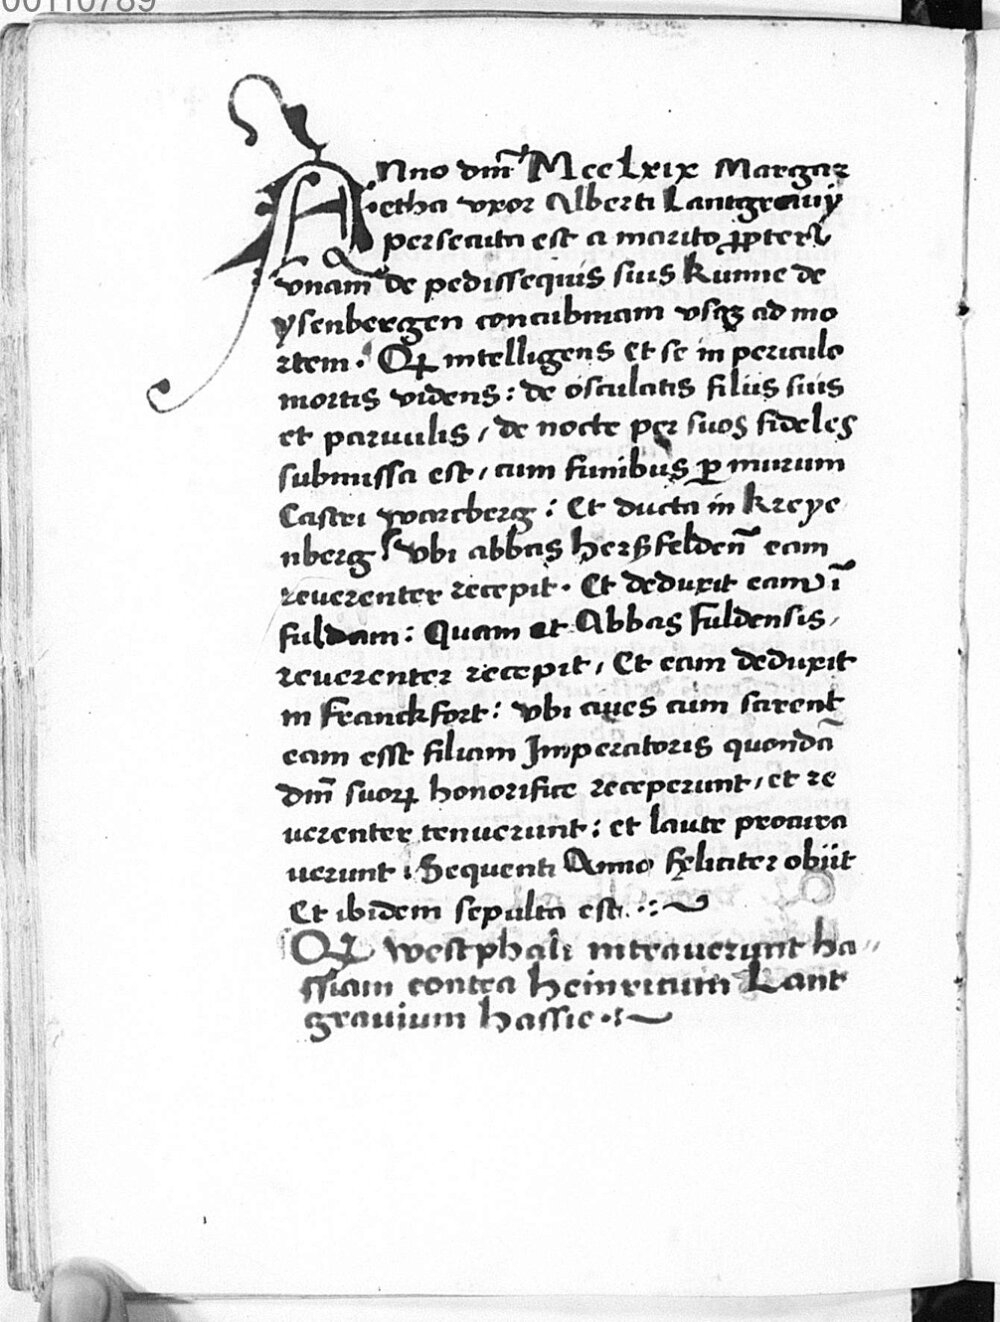 00110789
Anno dm̄ MccLxix Margar
etha vxor Alberti Lantgrauij
persecuta est a marito ꝓpter
vnam de pedissequis suis kunne de
ysenbergen concubinam vsqꝫ ad mo
rtem. Qꝛ intelligens et se in periculo
mortis videns: de osculatis filiis suis
et paruulis, de nocte per suos fideles
submissa est, cum funibus ꝑ murum
Castri warcberg: Et ducta in kreye
nberg vbi abbas herßfelden̄ eam
reuerenter recepit. Et deduxit eam ī
fuldam: Quam et Abbas fuldensis,
reuerenter recepit, Et eam deduxit
in franckfort: vbi ciues cum scirent
eam esse filiam Imperatoris quondā
dm̄ suoꝝ honorifice receperunt, et re
uerenter tenuerunt: et laute procura
uerunt. Sequenti Anno feliciter obiit
Et ibidem sepulta est.
Qꝛ westphali intrauerunt ha
ssiam contra heinricum Lant
grauium hassie.